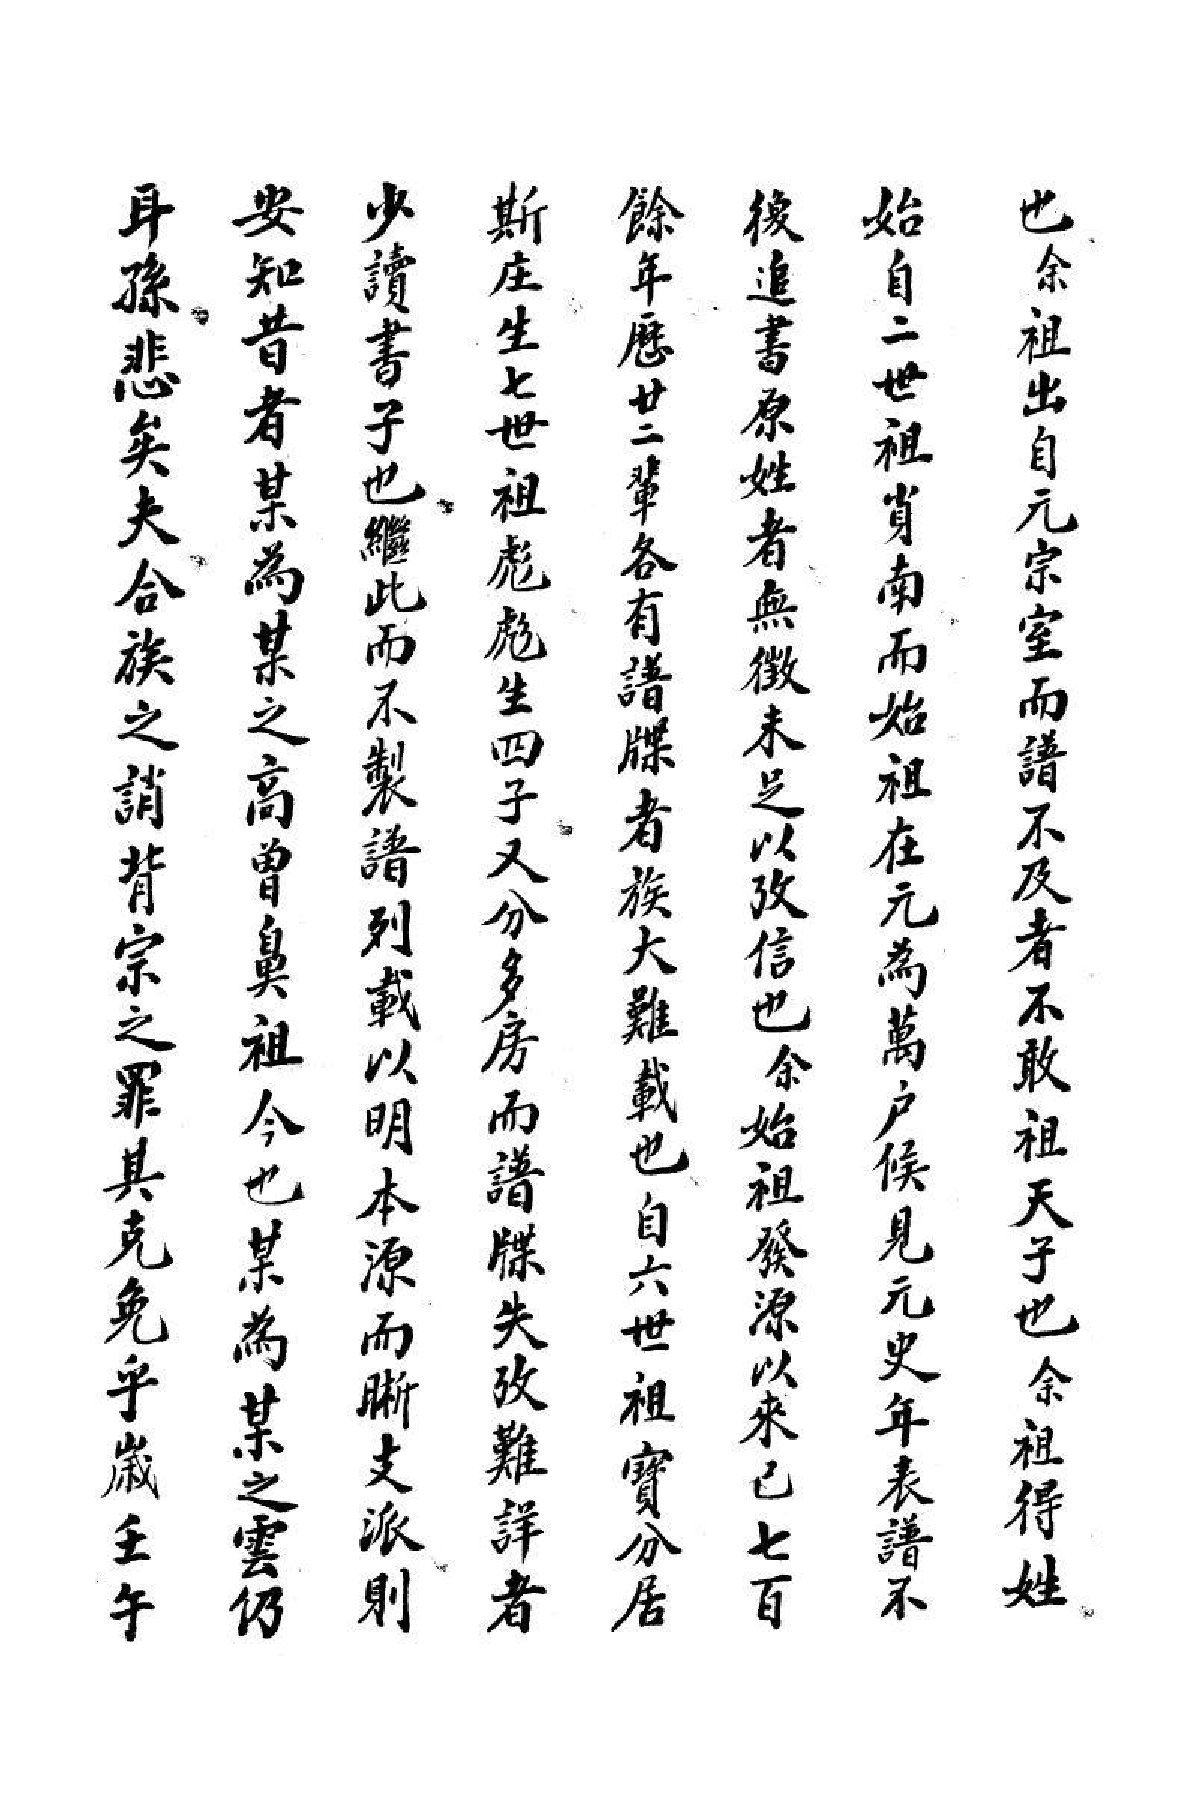 也余祖出自元宗室而譜不及者不敢祖天子也余祖得姓
始自二世祖肖南而始祖在元為萬户候見元史年表譜不
後追書原姓者無徵未足以攷信也余始祖發源以來已七百
餘年歷廿二輩各有譜牒者族大難載也自六世祖寶分居
斯庄生七世祖彪彪生四子又分多房而譜牒失攷難詳者
少讀書子也繼此而不製譜列載以明本源而晰支派則
安知昔者某為某之高曾鼻祖今也某為某之雲仍
耳孫悲矣夫合族之誚背宗之罪其克免乎嵗壬午